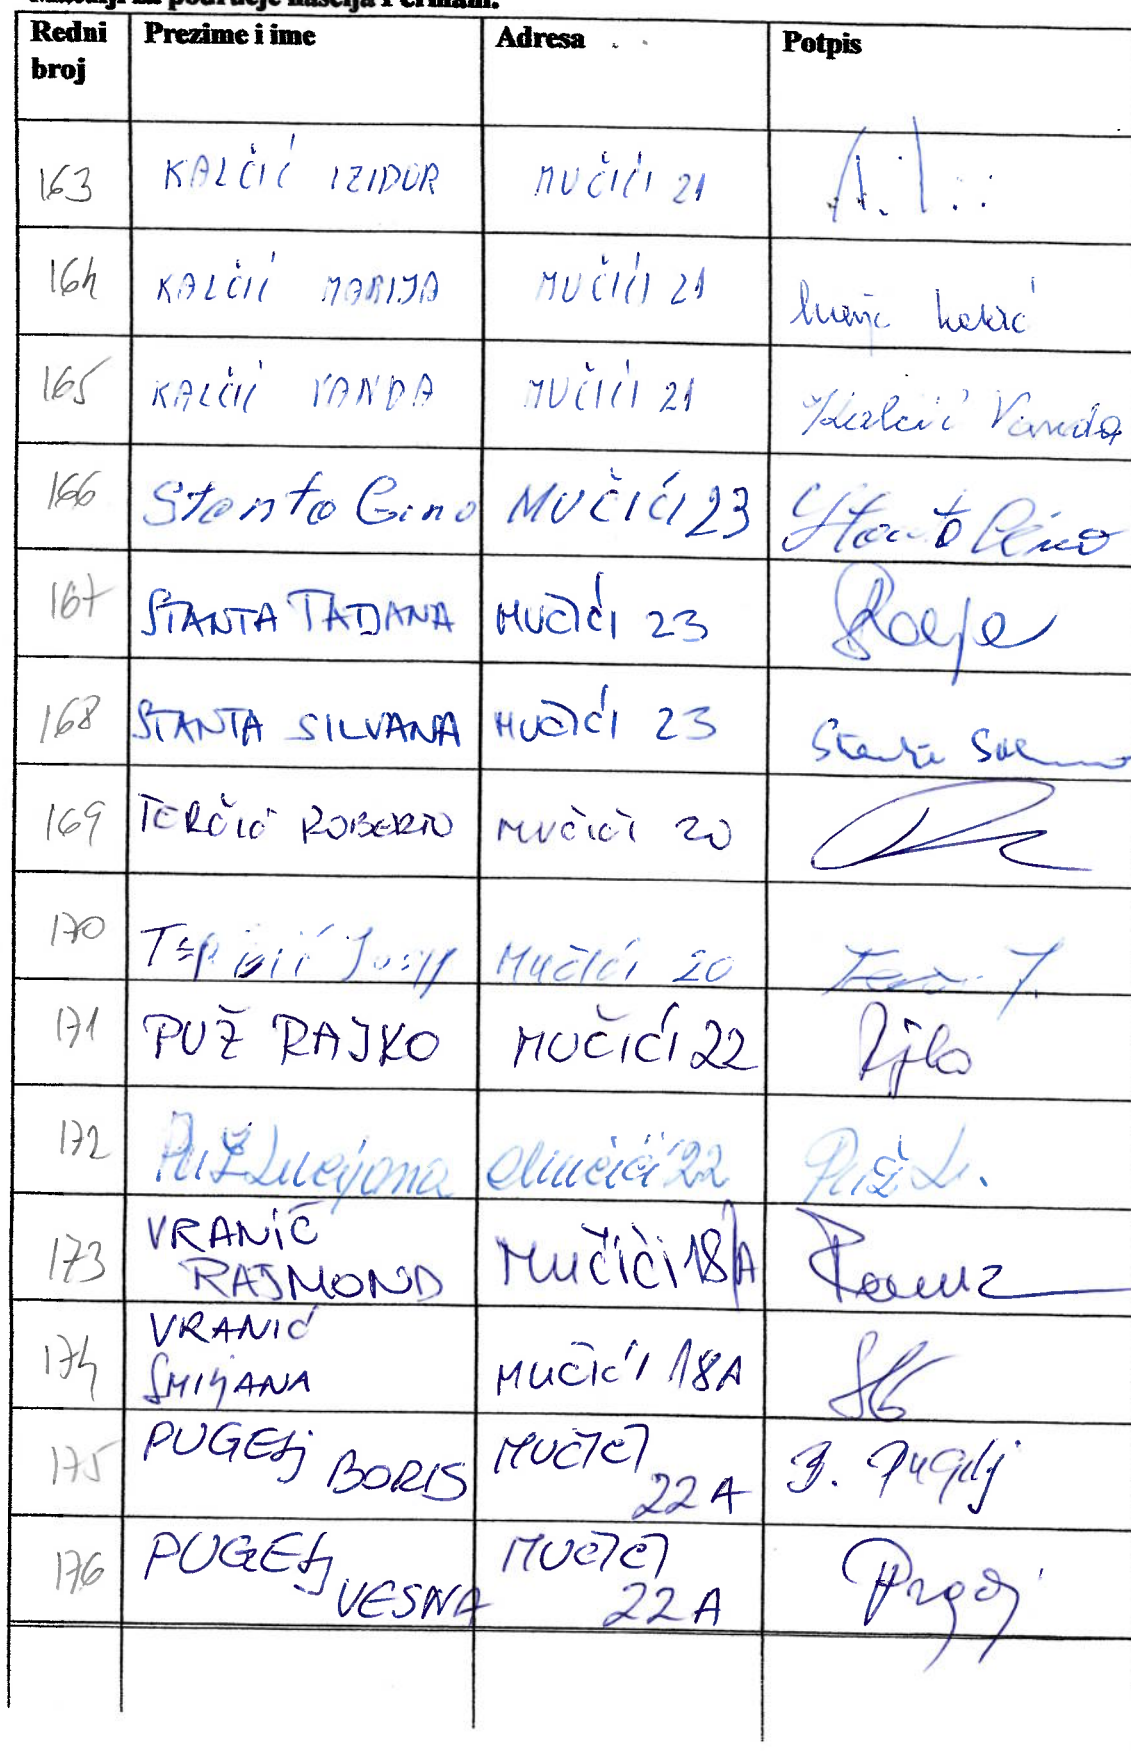 područje naselja Permani.
Redni broj Prezime i ime Adresa Potpis
163 KALČIĆ IZIDOR MUČIĆI 21
164 KALČIĆ MARIJA MUČIĆI 21
165 KALČIĆ VANDA MUČIĆI 21 Kalčić Vanda
166 Stanta Gino MUČIĆI 23 Stanta Gino
167 STANTA TATJANA MUČIĆI 23
168 STANTA SILVANA MUČIĆI 23
169 TERČIĆ ROBERTO MUČIĆI 20
170 Terčić Josip MUČIĆI 20
171 PUŽ RAJKO MUČIĆI 22
172 Puž Lucijana Mučići 22 Puž L.
173 VRANIĆ
RAJMOND MUČIĆI 18A
174 VRANIĆ
SMILJANA MUČIĆI 18A
175 PUGELJ BORIS MUČIĆI
22 A B. Pugelj
176 PUGELJ VESNA MUČIĆI
22 A